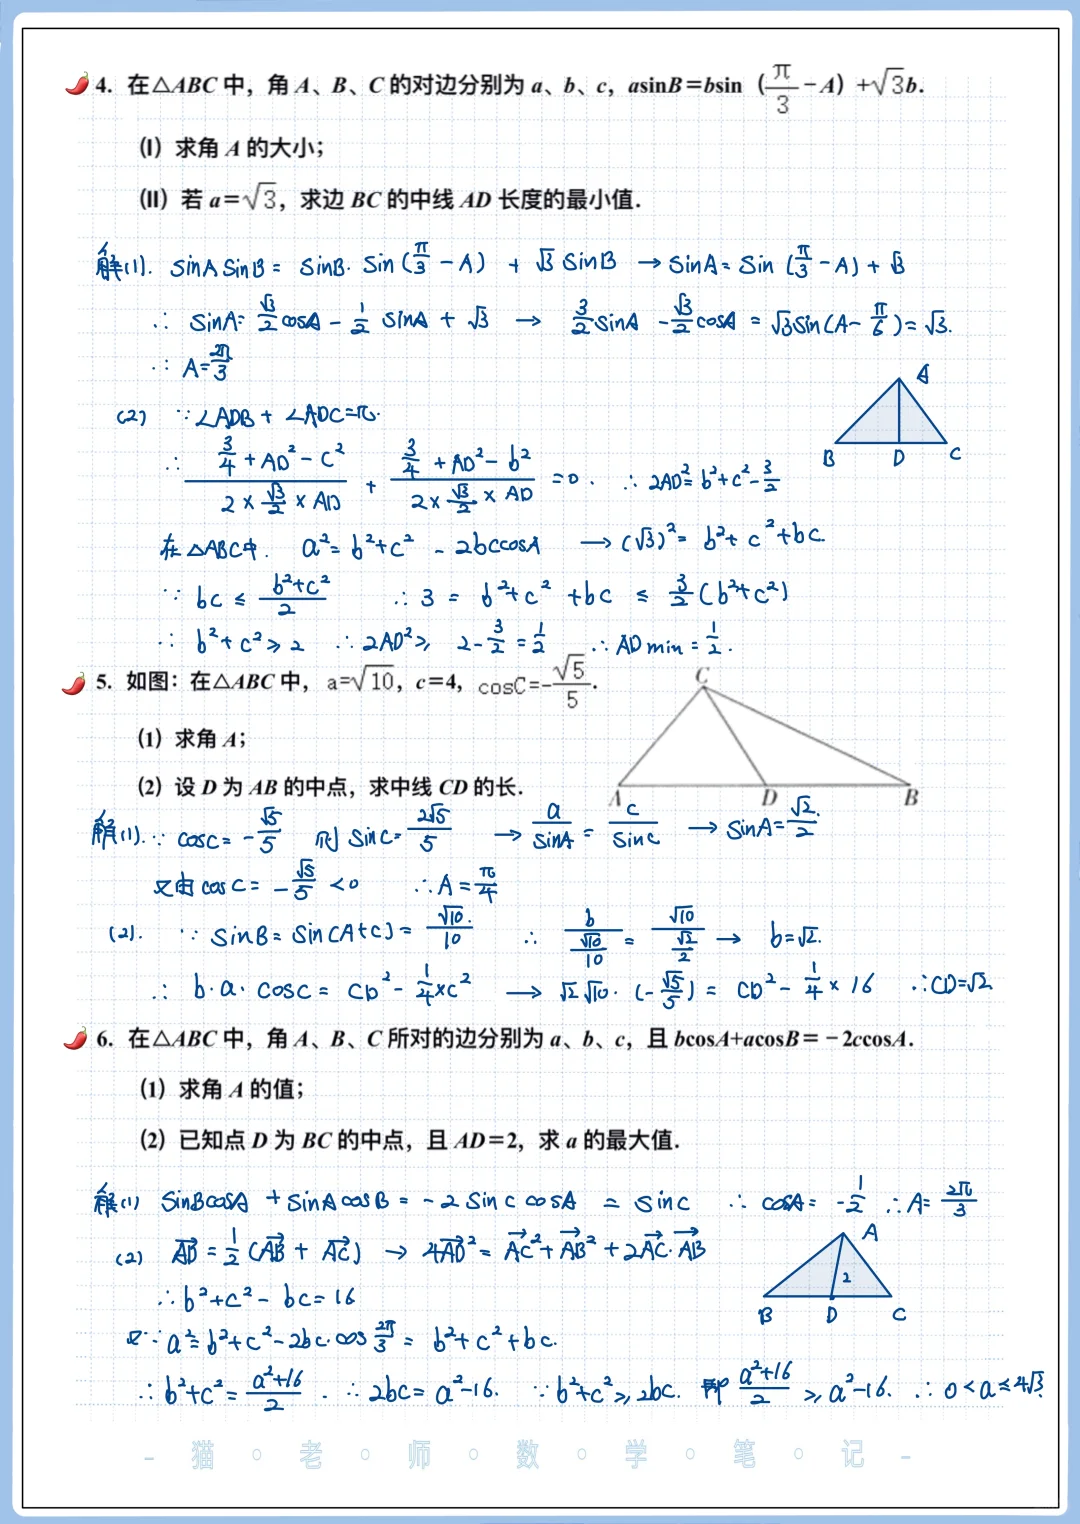 4. 在△ABC 中，角 A、B、C 的对边分别为 a、b、c，asinB＝bsin（π/3－A）+√3b．
(I) 求角 A 的大小；
(II) 若 a＝√3，求边 BC 的中线 AD 长度的最小值．
解(1). sinA sinB = sinB·sin(π/3 - A) + √3 sinB → sinA = sin(π/3 - A) + √3
∴ sinA = √3/2 cosA - 1/2 sinA + √3 → 3/2 sinA - √3/2 cosA = √3sin(A - π/6) = √3.
∴ A = 2π/3
A
B D C
(2) ∵ ∠ADB + ∠ADC = π.
∴ (3/4 + AD² - c²)/(2×√3/2×AD) + (3/4 + AD² - b²)/(2×√3/2×AD) = 0. ∴ 2AD² = b²+c² - 3/2
在△ABC中. a² = b²+c² - 2bccosA → (√3)² = b²+c²+bc.
∵ bc ≤ (b²+c²)/2 ∴ 3 = b²+c²+bc ≤ 3/2(b²+c²)
∴ b²+c² ≥ 2 ∴ 2AD² ≥ 2 - 3/2 = 1/2 ∴ ADmin = 1/2.
5. 如图：在△ABC 中，a=√10，c＝4，cosC=-√5/5．
(1) 求角 A；
(2) 设 D 为 AB 的中点，求中线 CD 的长．
C
A D B
解(1). ∵ cosC = -√5/5 则 sinC = 2√5/5 → a/sinA = c/sinC → sinA = √2/2.
又由 cosC = -√5/5 <0 ∴ A = π/4
(2). ∵ sinB = sin(A+C) = √10/10 ∴ b/(√10/10) = √10/(√2/2) → b=√2.
∴ b·a·cosC = CD² - 1/4×c² → √2·√10·(-√5/5) = CD² - 1/4×16 ∴ CD=√2
6. 在△ABC 中，角 A、B、C 所对的边分别为 a、b、c，且 bcosA+acosB＝－2ccosA．
(1) 求角 A 的值；
(2) 已知点 D 为 BC 的中点，且 AD＝2，求 a 的最大值．
解(1) sinBcosA + sinAcosB = -2sinCcosA = sinC ∴ cosA = -1/2 ∴ A = 2π/3
(2) AD→ = 1/2(AB→ + AC→) → 4AD→² = AC→² + AB→² + 2AC→·AB→
A
2
B D C
∴ b²+c² - bc = 16
又∵ a² = b²+c² - 2bc·cos2π/3 = b²+c²+bc.
∴ b²+c² = (a²+16)/2. ∴ 2bc = a²-16. ∵ b²+c² ≥ 2bc. 即 (a²+16)/2 ≥ a²-16. ∴ 0<a≤4√3.
- 猫 · 老 · 师 · 数 · 学 · 笔 · 记 -